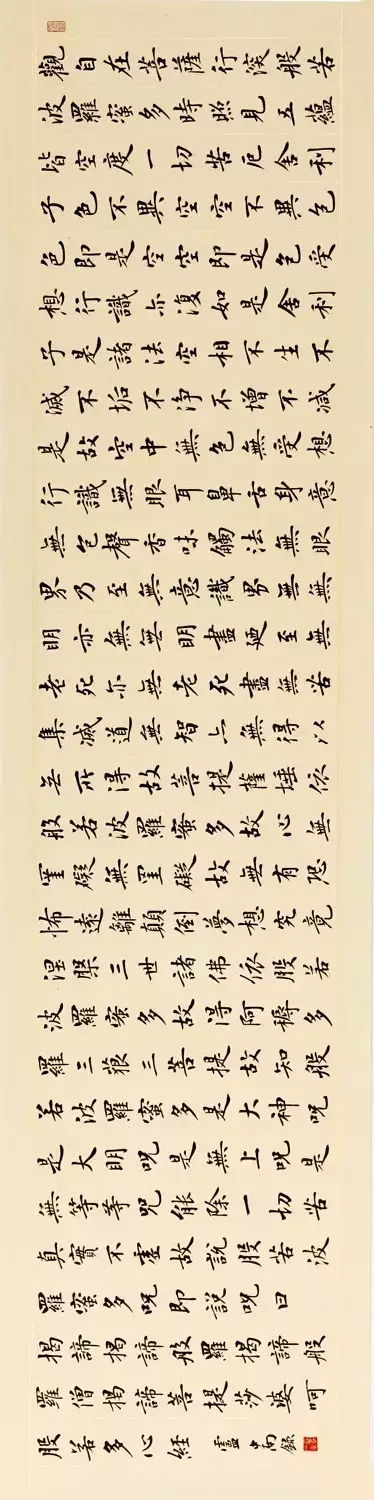 觀自在菩薩行深般若
波羅蜜多時照見五蘊
皆空度一切苦厄舍利
子色不異空空不異色
色即是空空即是色受
想行識亦復如是舍利
子是諸法空相不生不
滅不垢不淨不增不減
是故空中無色無受想
行識無眼耳鼻舌身意
無色聲香味觸法無眼
界乃至無意識界無無
明亦無無明盡廼至無
老死亦無老死盡無苦
集滅道無智亦無得以
無所得故菩提薩埵依
般若波羅蜜多故心無
罣礙無罣礙故無有恐
怖遠離顛倒夢想究竟
涅槃三世諸佛依般若
波羅蜜多故得阿耨多
羅三藐三菩提故知般
若波羅蜜多是大神呪
是大明呪是無上呪是
無等等呪能除一切苦
真實不虛故說般若波
羅蜜多呪即說呪曰
揭諦揭諦般羅揭諦般
羅僧揭諦菩提莎婆呵
般若多心經